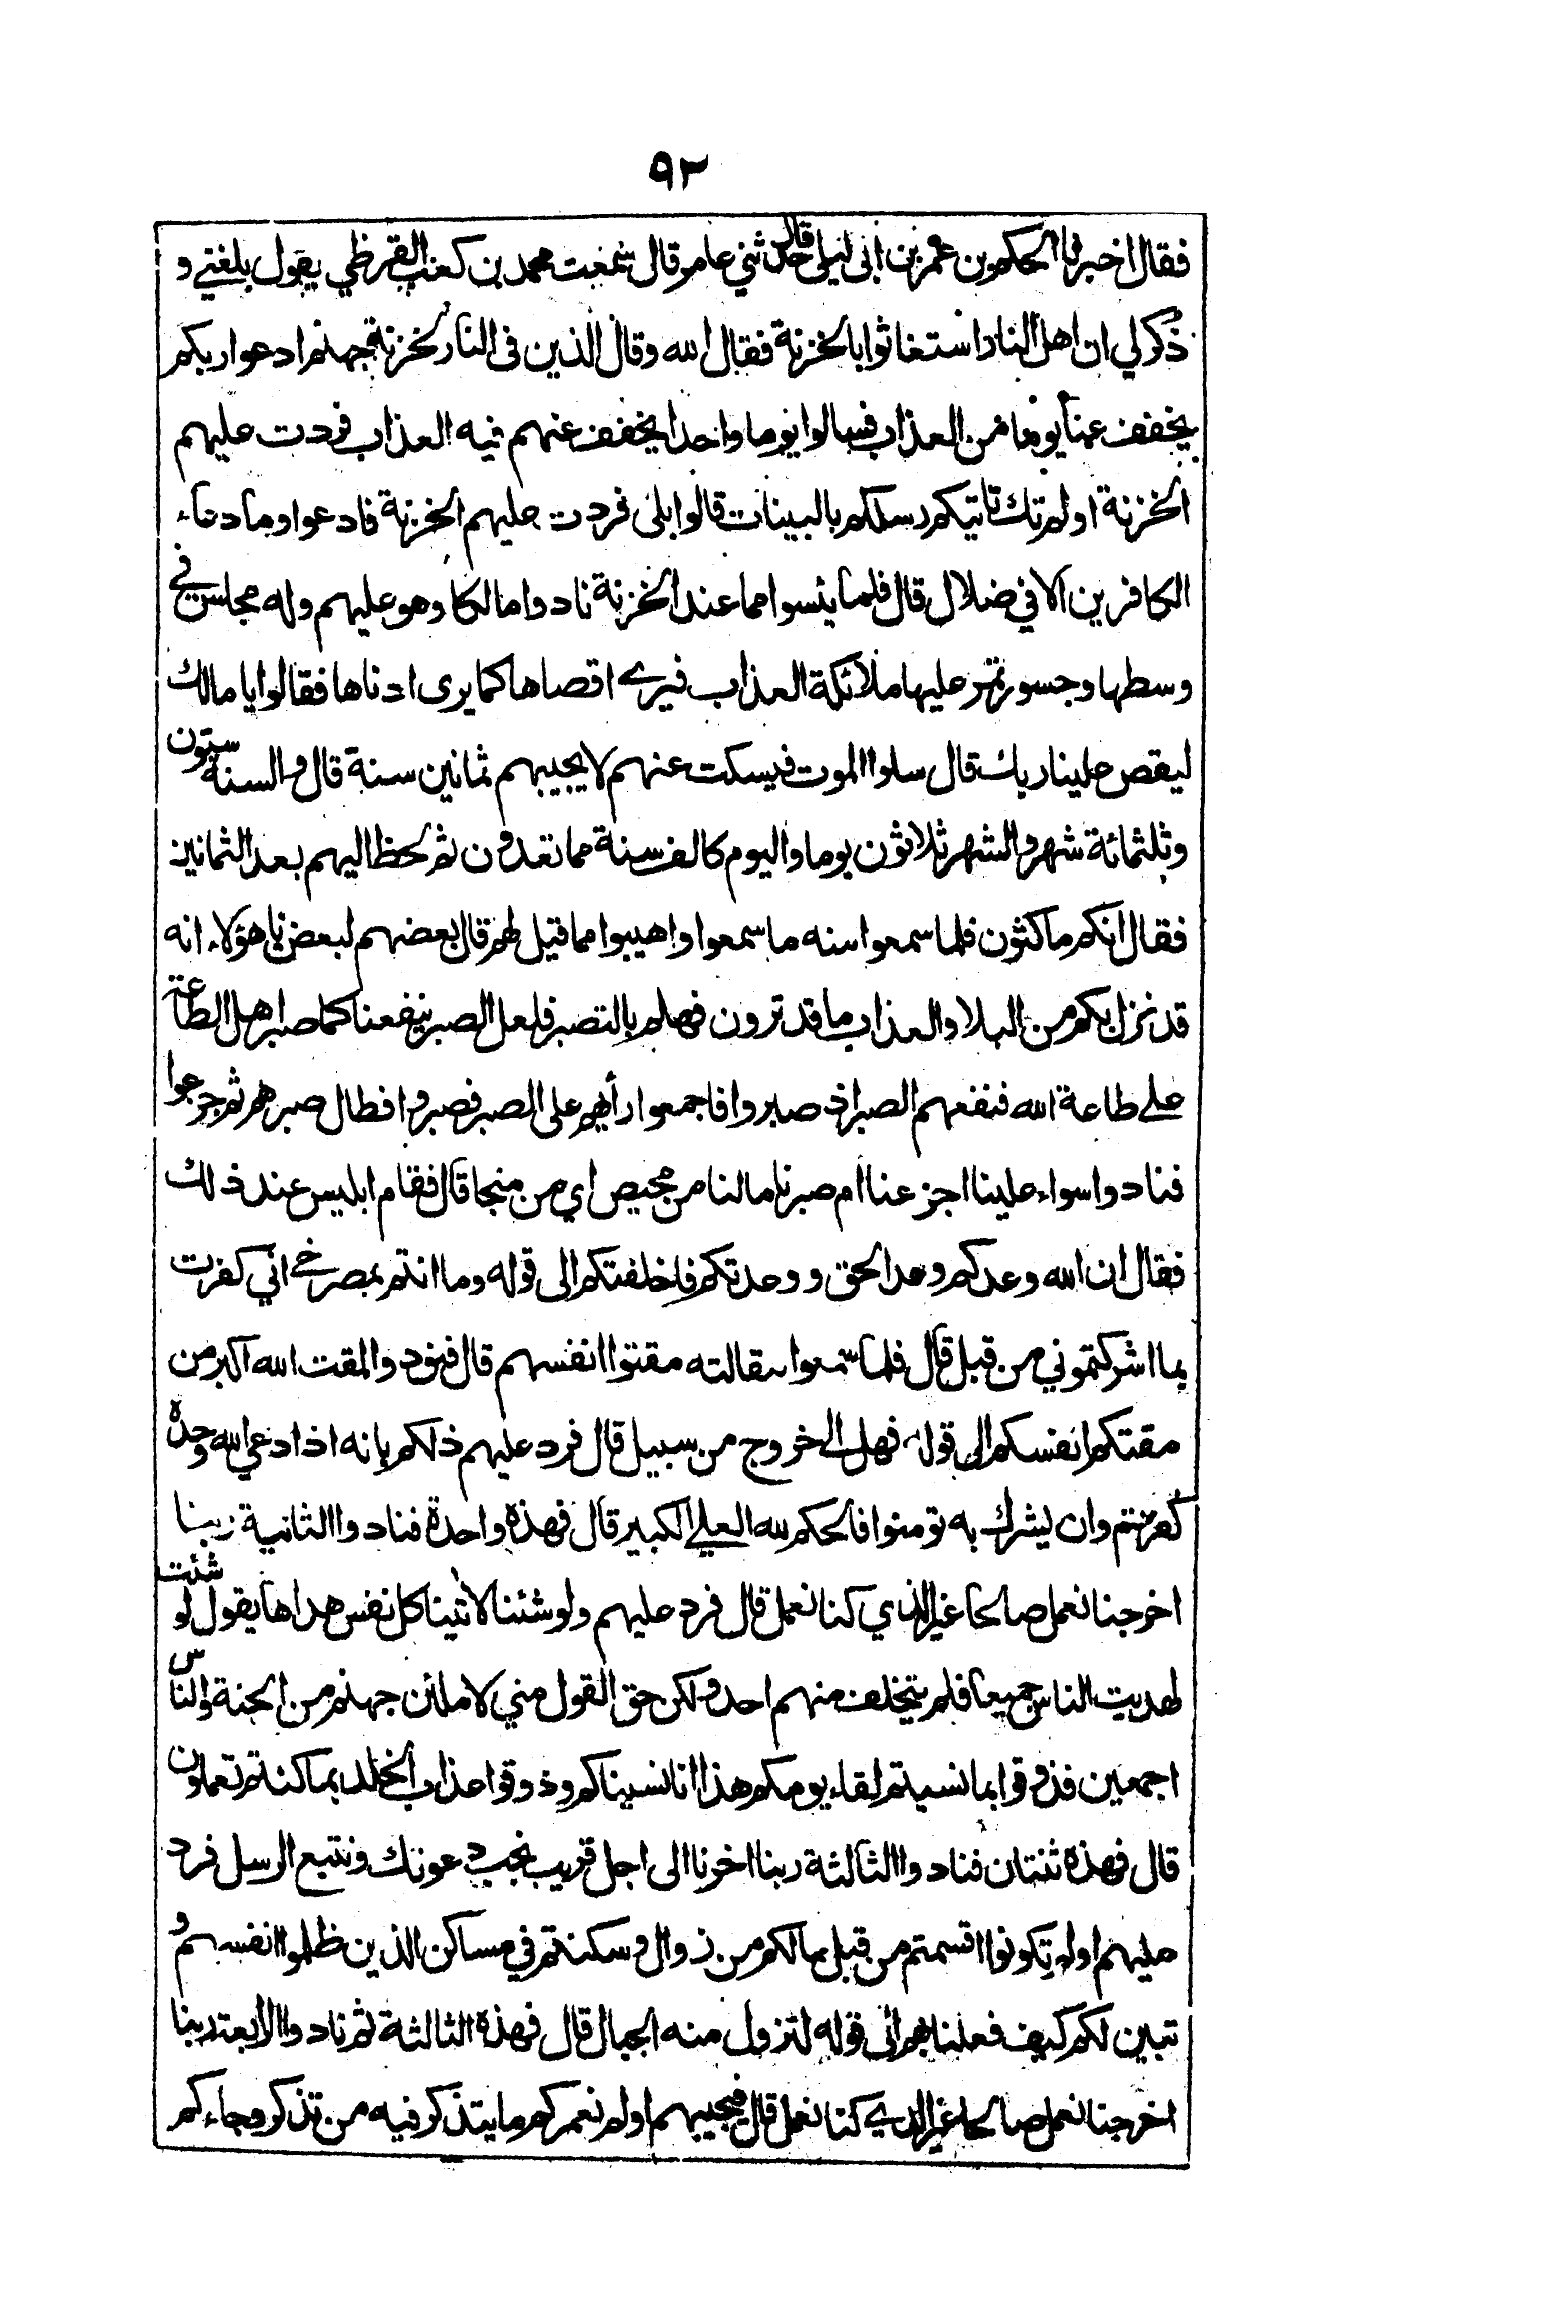 ٩٢
فقال اخبرنا الحكم بن عمر بن ابى ليلى قال حدثني عامر قال سمعت محمد بن كعب القرظي يقول بلغني و
ذكر لي ان اهل النار استغاثوا بالخزنة فقال الله وقال الذين في النار لخزنة جهنم ادعوا ربكم
يخفف عنا يوما من العذاب فسالوا يوما واحدا يخفف عنهم فيه العذاب فردت عليهم
الخزنة اولم تك تاتيكم رسلكم بالبينات قالوا بلى فردت عليهم الخزنة فادعوا وما دعاء
الكافرين الا في ضلال قال فلما يئسوا مما عند الخزنة نادوا مالكا وهو عليهم وله مجلس في
وسطها وجسور تمر عليها ملائكة العذاب فيرى اقصاها كما يرى ادناها فقالوا يا مالك
ليقض علينا ربك قال سلوا الموت فيسكت عنهم لا يجيبهم ثمانين سنة قال والسنة ستون
وثلثمائة شهر والشهر ثلاثون يوما واليوم كالف سنة مما تعدون ثم لحظ اليهم بعد الثمانين
فقال انكم ماكثون فلما سمعوا منه ما سمعوا واهيبوا مما قيل لهم قال بعضهم لبعض يا هؤلاء انه
قد نزل بكم من البلاء والعذاب ما قد ترون فهلم بالتصبر فلعل الصبر ينفعنا كما صبر اهل الطاعة
على طاعة الله فنفعهم الصبر اذ صبروا فاجمعوا رأيهم على الصبر فصبروا فطال صبرهم ثم جزعوا
فنادوا سواء علينا اجزعنا ام صبرنا ما لنا من محيص اي من منجا قال فقام ابليس عند ذلك
فقال ان الله وعدكم وعد الحق ووعدتكم فاخلفتكم الى قوله وما انتم بمصرخي اني كفرت
بما اشركتموني من قبل قال فلما سمعوا مقالته مقتوا انفسهم قال فنودوا لمقت الله اكبر من
مقتكم انفسكم الى قوله فهل الى خروج من سبيل قال فرد عليهم ذلكم بانه اذا دعي الله وحده
كفرتم وان يشرك به تومنوا فالحكم لله العلي الكبير قال فهذه واحدة فنادوا الثانية ربنا
اخرجنا نعمل صالحا غير الذي كنا نعمل قال فرد عليهم ولو شئنا لاتينا كل نفس هداها يقول لو شئت
لهديت الناس جميعا فلم يتخلف منهم احد ولكن حق القول مني لاملئن جهنم من الجنة والناس
اجمعين فذوقوا بما نسيتم لقاء يومكم هذا انا نسيناكم وذوقوا عذاب الخلد بما كنتم تعملون
قال فهذه ثنتان فنادوا الثالثة ربنا اخرنا الى اجل قريب نجب دعوتك ونتبع الرسل فرد
عليهم اولم تكونوا اقسمتم من قبل ما لكم من زوال وسكنتم في مساكن الذين ظلموا انفسهم و
تبين لكم كيف فعلنا بهم الى قوله لتزول منه الجبال قال فهذه الثالثة ثم نادوا الرابعة ربنا
اخرجنا نعمل صالحا غير الذي كنا نعمل قال فيجيبهم اولم نعمركم ما يتذكر فيه من تذكر وجاءكم